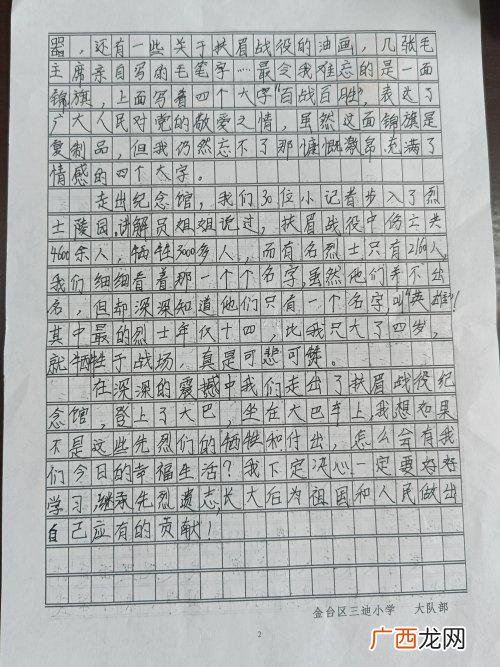 器，还有一些关于扶眉战役的油画，几张毛
主席亲自写的毛笔字……最令我难忘的是一面
锦旗，上面写着四个大字"百战百胜"，表达了
广大人民对党的敬爱之情，虽然这面锦旗是
复制品，但我仍然忘不了那慷慨激昂，充满了
情感的四个大字。
走出纪念馆，我们30位小记者步入了烈
士陵园，讲解员姐姐说过，扶眉战役中伤亡共
4600余人，牺牲3000多人，而有名烈士只有2160人，
我们细细看着那一个个名字，虽然他们并不出
名，但却深深知道他们只有一个名字，叫"英雄"！
其中最的烈士年仅十四，比我只大了四岁，
就牺牲于战场，真是可悲可赞。
在深深的震撼中我们走出了扶眉战役纪
念馆，登上了大巴，坐在大巴车上我想如果
不是这些先烈们的牺牲和付出，怎么会有我
们今日的幸福生活？我下定决心一定要好好
学习，继承先烈遗志，长大后为祖国和人民做出
自己应有的贡献！
金台区三迪小学 大队部
2
广西龙网